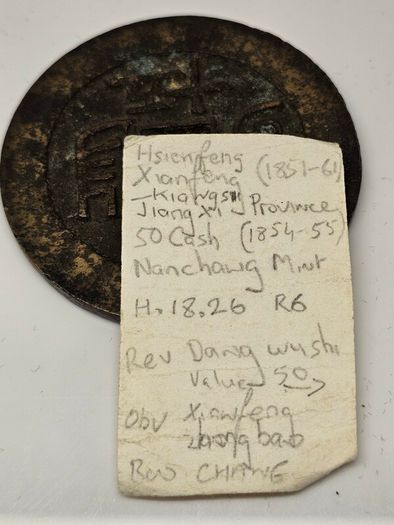 Hsienfeng
Xianfeng (1851-61)
Kiangsi
Jiangxi Province
50 Cash (1854-55)
Nanchawg Mint
H.18.26 R6
Rev Dang wushi
Value 50
Obv Xianfeng
zhongbao
Bao CHANG